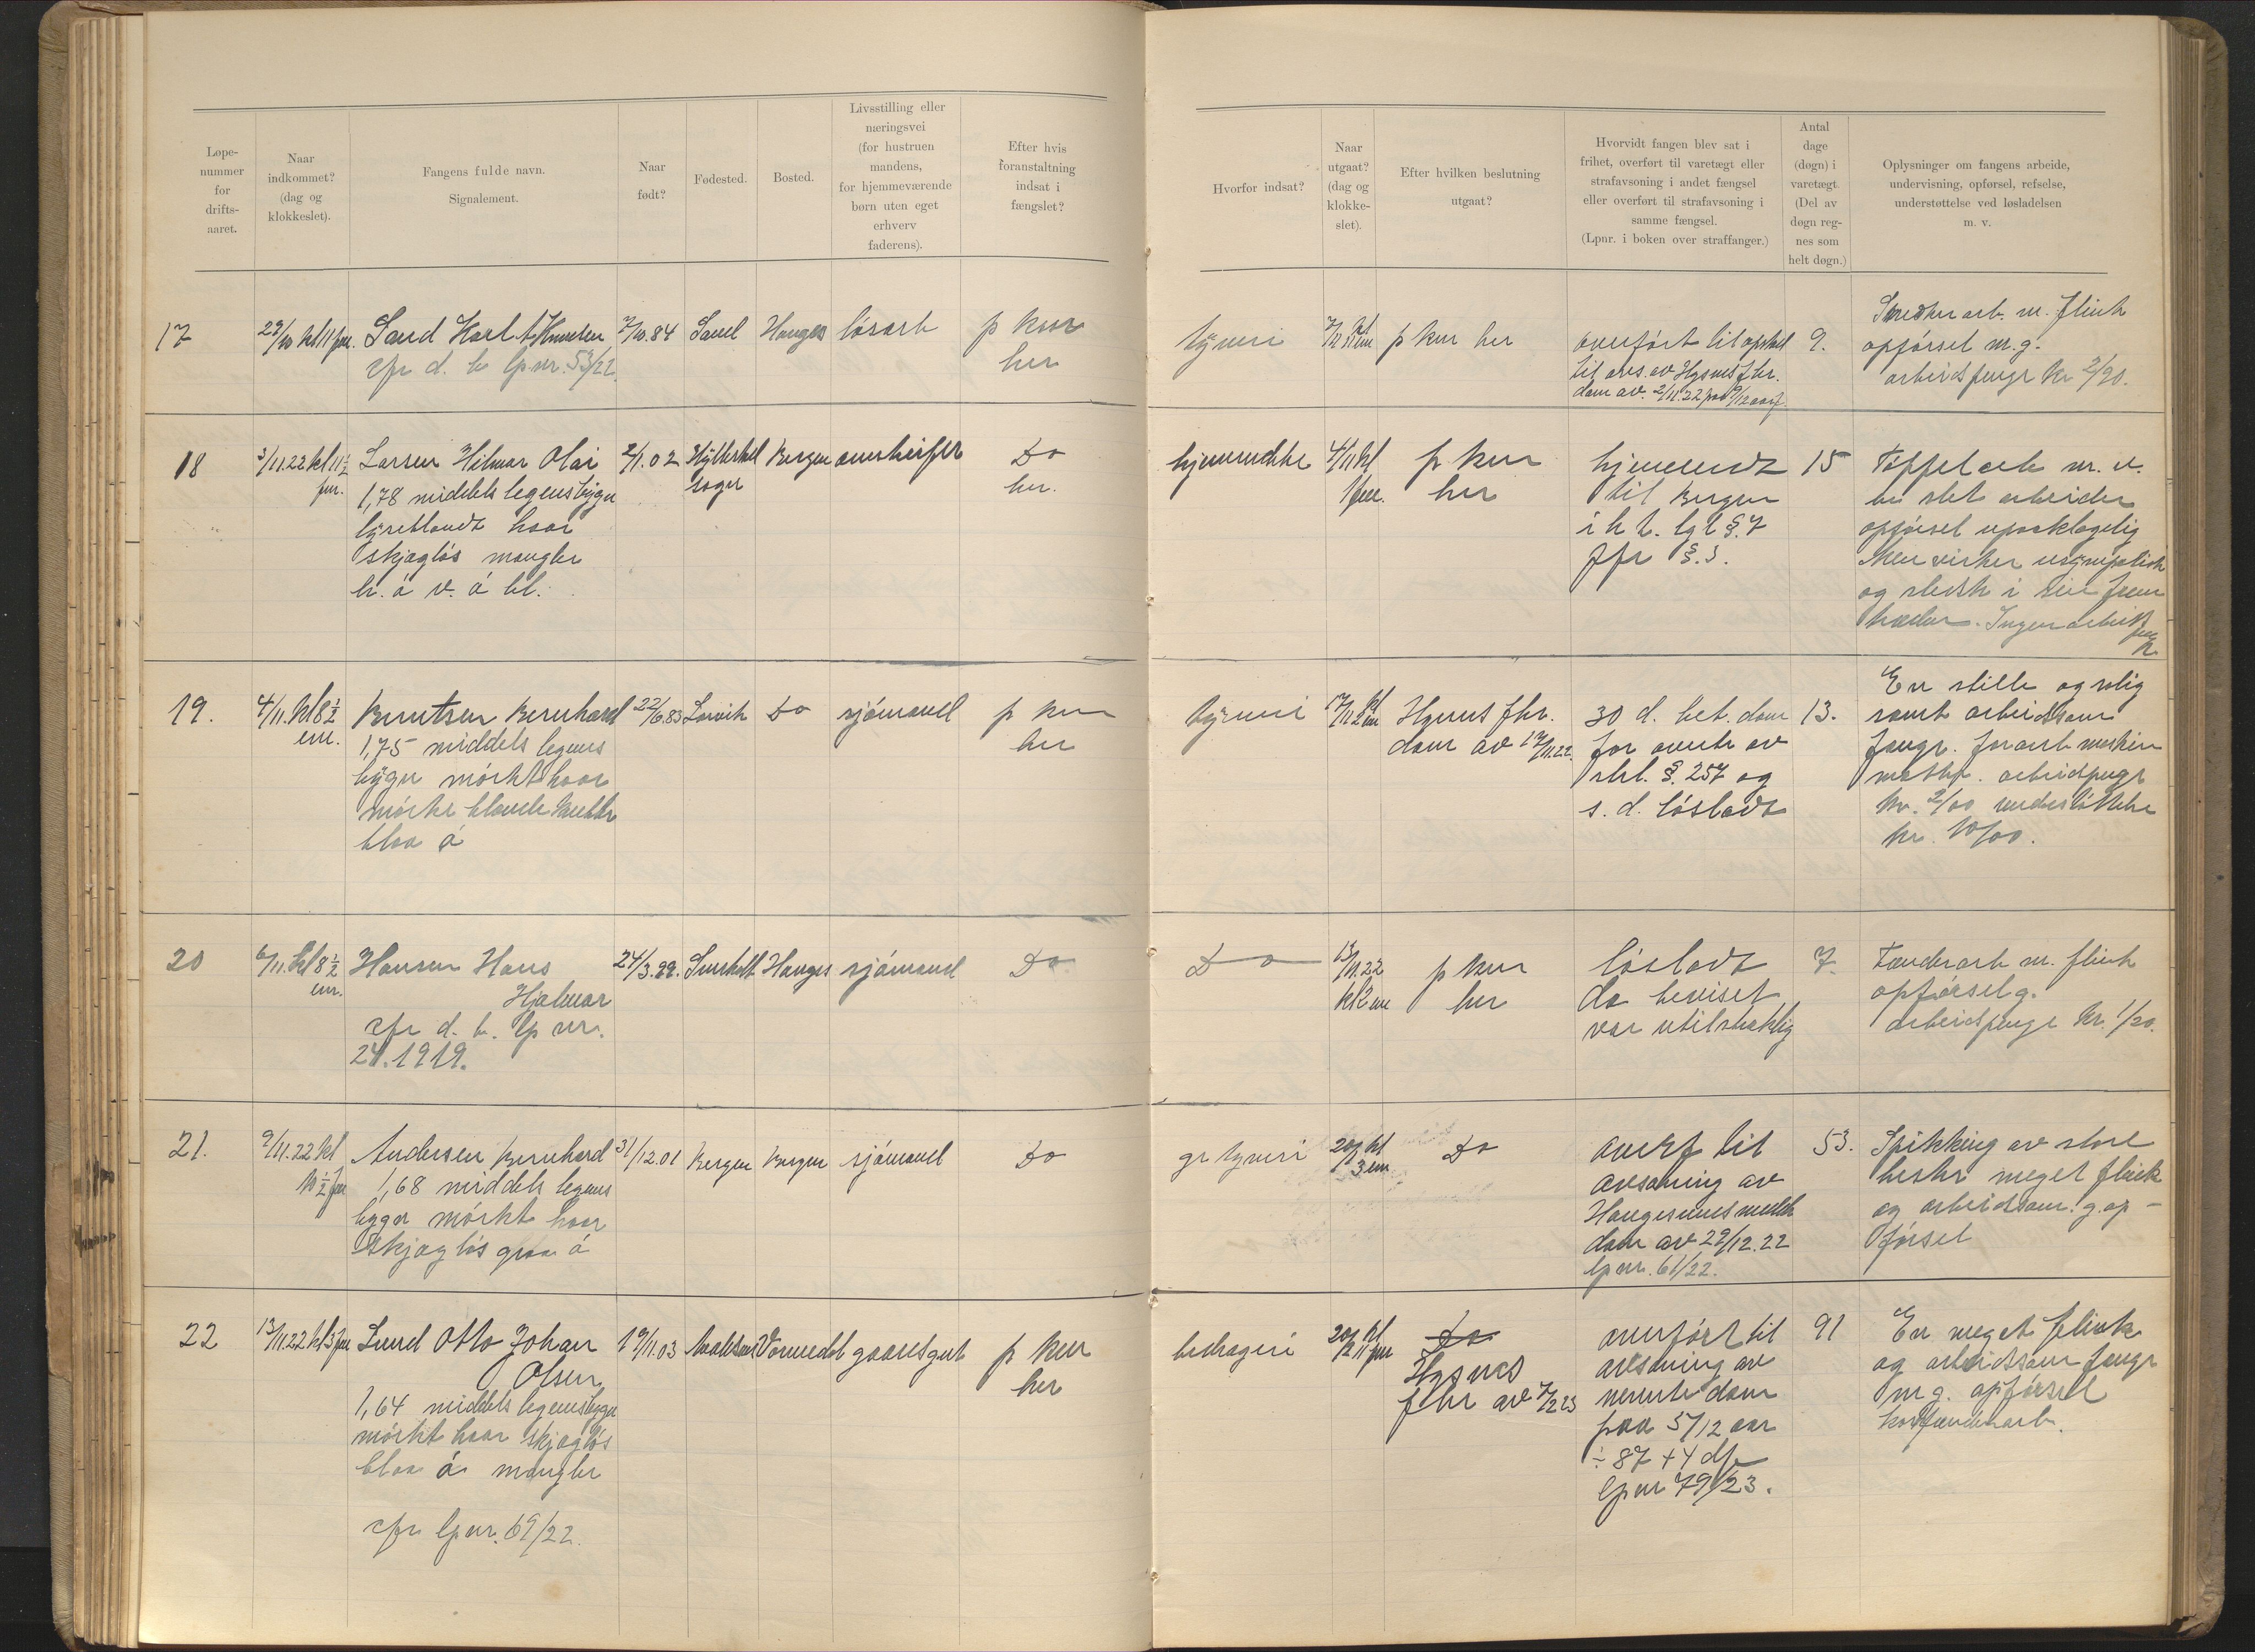 Løpe-
nummer
for
drifts-
aaret.
Naar
indkommet?
(dag og
klokkeslet).
Fangens fulde navn.
Signalement.
Naar
født?
Fødested.
Bosted.
Livsstilling eller
næringsvei
(for hustruen
mandens,
for hjemmeværende
børn uten eget
erhverv
faderens).
Efter hvis
foranstaltning
indsat i
fængslet?
Hvorfor indsat?
Naar
utgaat?
(dag og
klokke-
slet).
Efter hvilken beslutning
utgaat?
Hvorvidt fangen blev sat i
frihet, overført til varetægt eller
strafavsoning i andet fængsel
eller overført til strafavsoning i
samme fængsel.
(Lpnr. i boken over straffanger.)
Antal
dage
(døgn) i
varetægt.
(Del av
døgn reg-
nes som
helt døgn.)
Oplysninger om fangens arbeide,
undervisning, opførsel, refselse,
understøttelse ved løsladelsen
m. v.
17
29/10 kl 11 fm.
Sand Karl Knutsen
cfr d. b lpnr. 53/22.
7/10.84
Sand
Hauges
løsarb
p kmr
her
tyveri
p kmr her
overført til
til avs. av Hgsnes fhr.
dom av 2/11.22 paa 9/12 aars f.
9.
arb. m. flink
opførsel m. g.
arbeidspenge kr 2/20.
18
3/11.22 kl 11½
fm.
Larsen Hilmar Olai
1,78 middels legemsbygn
lyseblondt haar
skjægløs mangler
br. ø v. ø bl.
2/1.02
Bergen
Do
her.
4/11 kl
1 fm.
p kmr
her
hjemsendt
til Bergen
i h t. lgl §. 7
jfr §. 3.
15
Tøffelarb m. v.
en slet arbeider
opførsel upaaklagelig
Men virker usympatisk
og slesk i sin frem
træden. Ingen arbeids
penge
19.
4/11. kl 8½
em.
Knutsen Bernhard
1,75 middels legems
bygn mørkt haar
mørke blonde knebler
blaa ø
22/6.83
Larvik
Do
sjømand
p kmr
her
tyveri
17/11 kl 12 em
Hgsnes fhr.
dom av 17/11.22.
30 d. bet. dom
for overtr av
strl. §. 257 og
s. d. løsladt
13.
En stille og rolig
samt arbeidssom
fange. forarb maskin
matter. arbeidspenge
kr. 2/00 understøttelse
kr. 10/00.
20
6/11. kl 8½
em.
Hansen Hans
Hjalmar
cfr d. b. lp nr.
24. 1919.
24/3.99.
Hauges
sjømand
Do
Do
13/11.22
kl 2 em
p kmr
her
løsladt
da beviset
var utilstrækkelig
7.
Tønderarb m. flink
opførsel g.
arbeidspenge kr. 1/20.
21.
9/11.22 kl
10½ fm
Andersen Bernhard
1,68 middels legems
bygn mørkt haar
skjægløs graa ø
31/12.01
Bergen
Bergen
sjømand
Do
gr tyveri
20/1 kl
3 em
Do
overf til
avsoning av
Haugesunds meddr
dom av 29/12.22
lpnr. 61/22.
53.
Spikking av store
hester meget flink
og arbeidsom. g. op-
førsel
22
13/11.22 kl 3 fm
Lund Otto Johan
Olsen
1,64 middels legemsbygn
mørkt haar skjægløs
blaa ø mangler
cfr lpnr. 69/22.
19/11.03
Vormedal
gaardsgut
p kmr
her
bedrageri
20/2 kl 11 fm
Do
Hgsnes
fhr av 7/2 23
overført til
avsoning av
nevnte dom
paa 5/12 aar
÷ 87 + 4 df
lpnr 79/23.
91
En meget flink
og arbeidssom fange
m g. opførsel